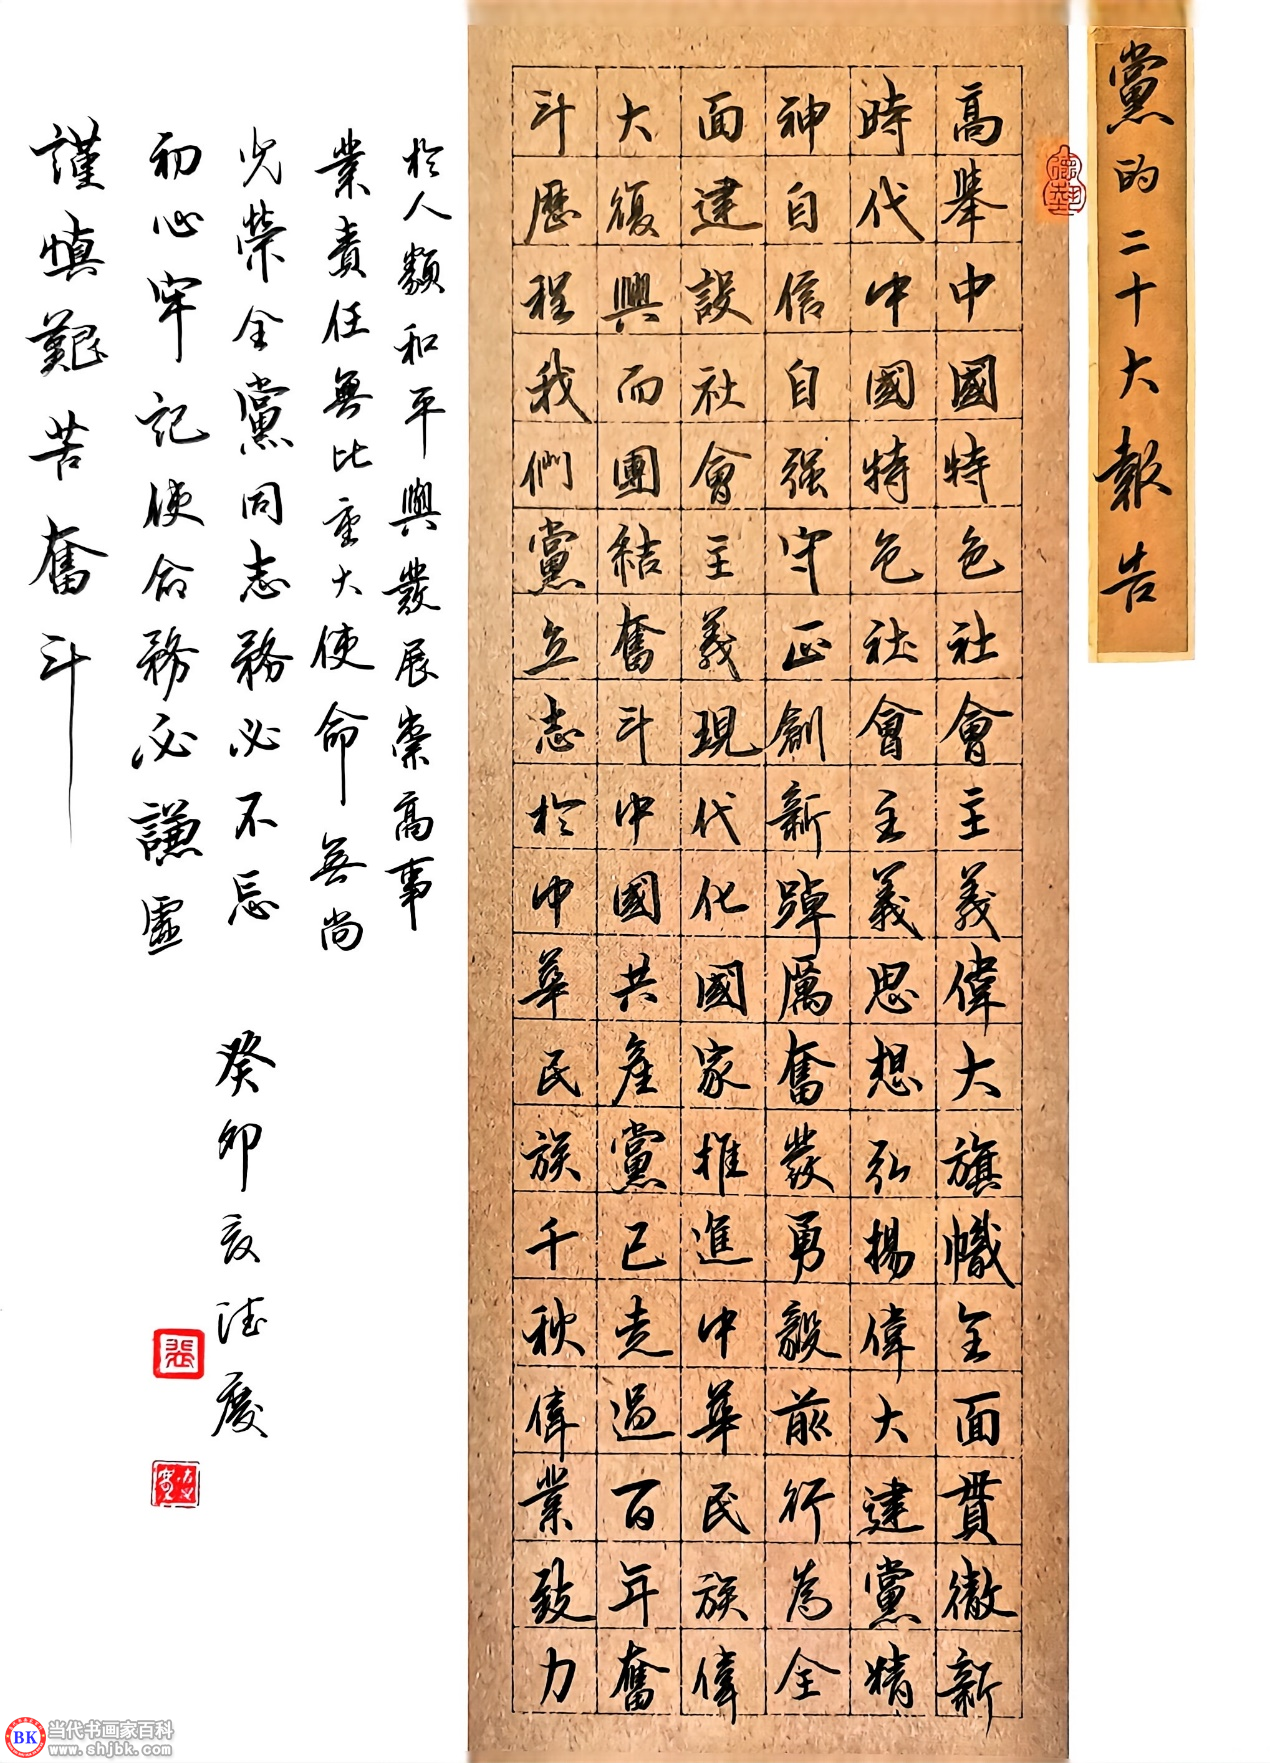 黨的二十大報告
高舉中國特色社會主義偉大旗幟全面貫徹新
時代中國特色社會主義思想弘揚偉大建黨精
神自信自强守正創新踔厲奮發勇毅前行為全
面建設社會主義現代化國家推進中華民族偉
大復興而團結奮斗中國共産黨已走過百年奮
斗歷程我們黨立志於中華民族千秋偉業致力
於人類和平與發展崇高事
業責任無比重大使命無尚
光榮全黨同志務必不忘
初心牢記使命務必謙虛
謹慎艱苦奮斗
癸卯德慶
張
BK 当代书画家百科
www.shjbk.com